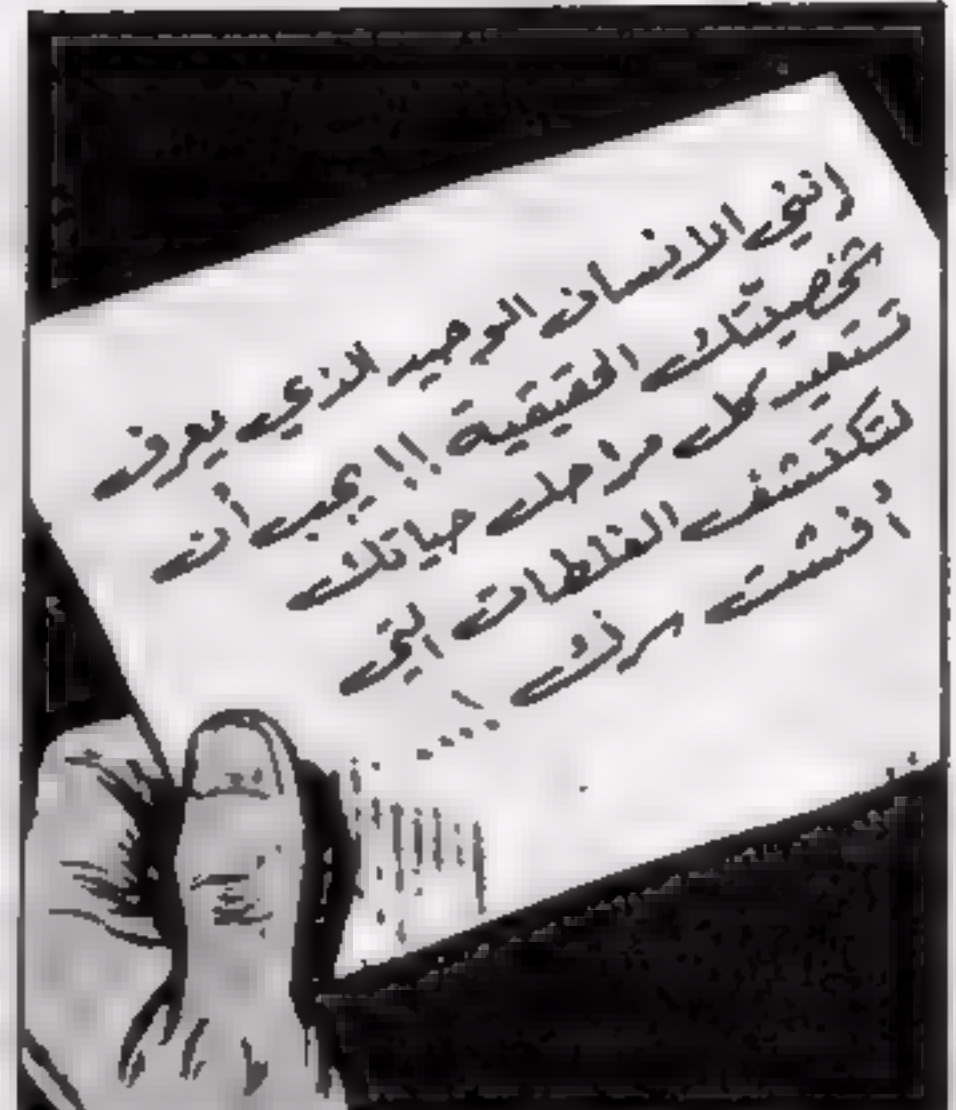 إنني الانسان الوحيد الذي يعرف
شخصيتك الحقيقية !! يجب أن
تستعيد كل مراحل حياتك
لتكتشف الغلطات التي
أفشت سرك ....